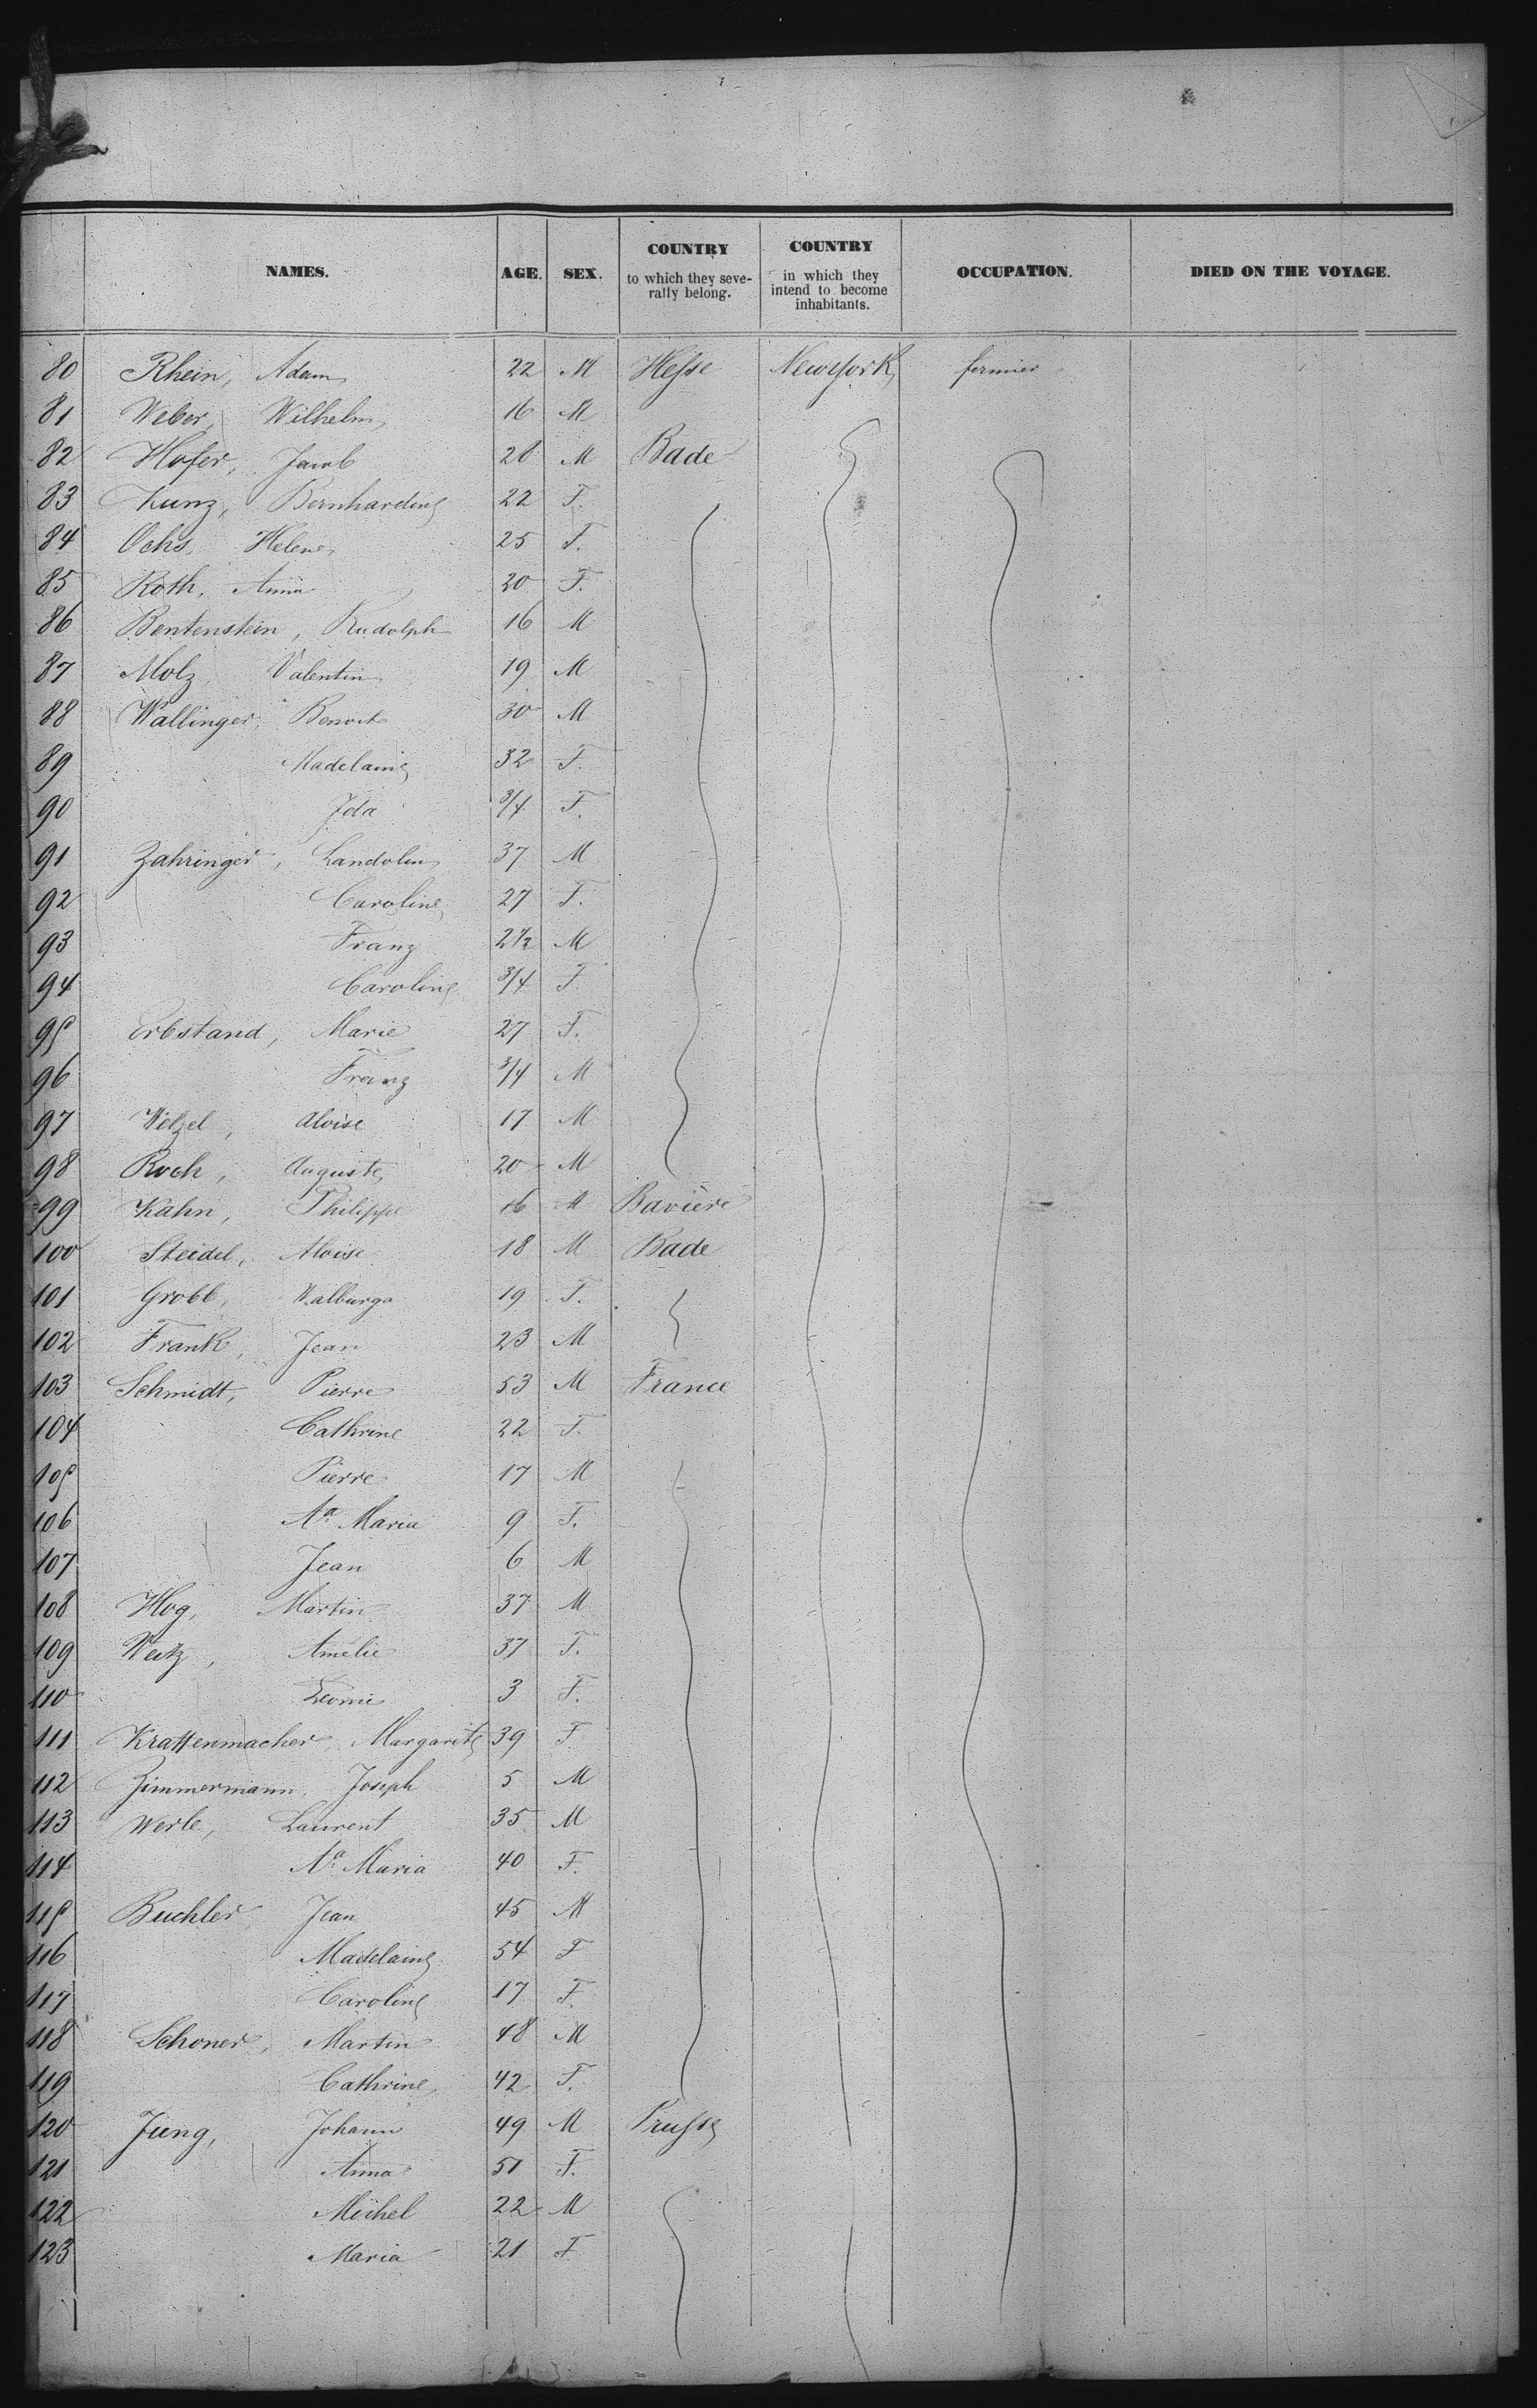 NAMES. AGE. SEX. COUNTRY to which they severally belong. COUNTRY in which they intend to become inhabitants. OCCUPATION. DIED ON THE VOYAGE.
80 Rhein, Adam 22 M Hesse New york fermier
81 Weber, Wilhelm 16 M
82 Hofer, Jacob 28 M Bade
83 Kunz, Bernhardine 22 F.
84 Ochs, Helene 25 F.
85 Roth, Anna 20 F.
86 Bentenstein, Rudolph 16 M
87 Molz, Valentin 19 M
88 Wallinger, Benoit 30 M
89 Madelaine 32 F.
90 Ida 3/4 F.
91 Zahringer, Landolin 37 M
92 Caroline 27 F.
93 Franz 2 1/2 M
94 Caroline 3/4 F
95 Erbstand, Marie 27 F.
96 Franz 3/4 M
97 Welzel, Aloise 17 M
98 Roch, Auguste 20 M
99 Kahn, Philippe 16 M Bavière
100 Steidel, Aloise 18 M Bade
101 Grobb, Walburga 19 F.
102 Frank, Jean 23 M
103 Schmidt, Pierre 53 M France
104 Cathrine 22 F.
105 Pierre 17 M
106 Aª Maria 9 F.
107 Jean 6 M
108 Hog, Martin 37 M
109 Weitz, Amélie 37 F.
110 Leonie 3 F.
111 Krattenmacher, Margarite 39 F
112 Zimmermann, Joseph 5 M
113 Werle, Laurent 35 M
114 Aª Maria 40 F.
115 Buchler, Jean 45 M
116 Madelaine 54 F
117 Caroline 17 F.
118 Schoner, Martin 48 M
119 Cathrine 42 F.
120 Jung, Johann 49 M Prusse
121 Anna 51 F.
122 Michel 22 M
123 Maria 21 F